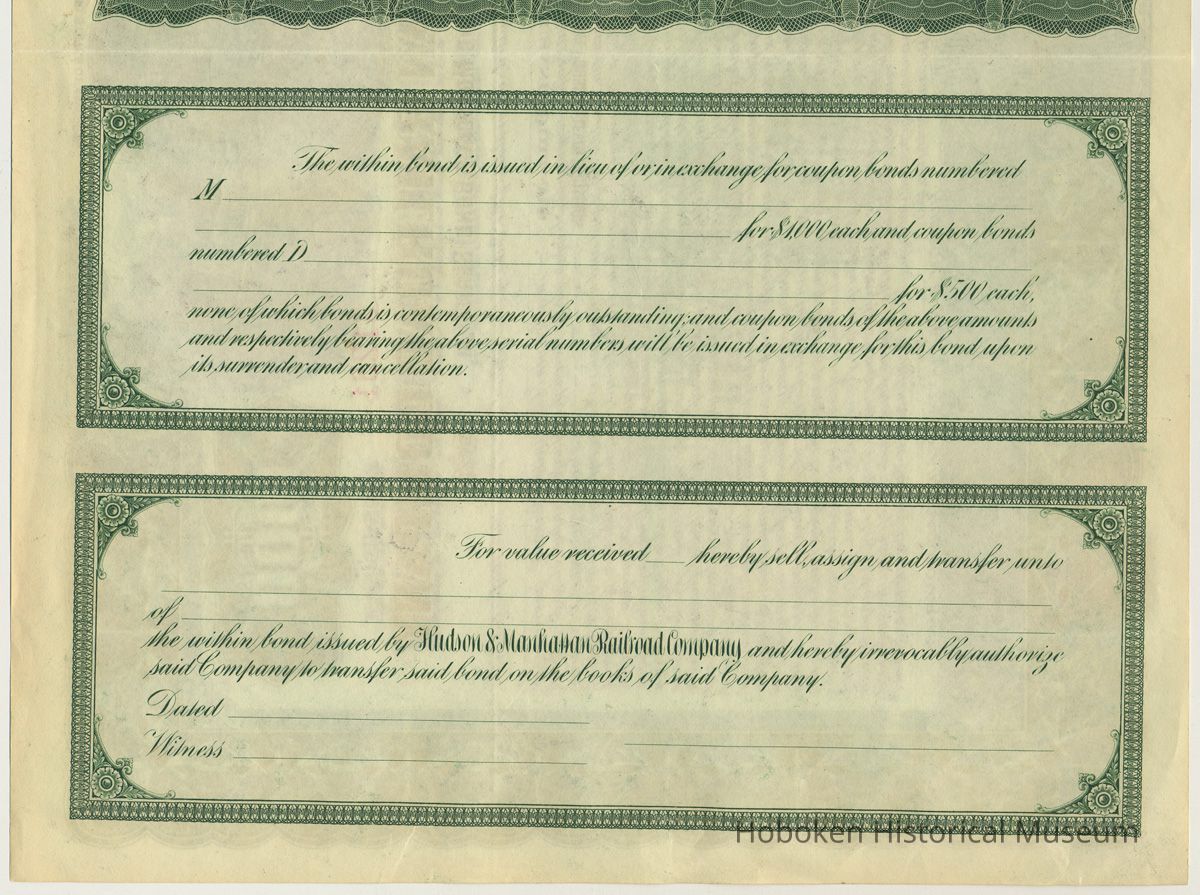 The within bond is issued in lieu of or in exchange for coupon bonds numbered
M
for $1,000 each and coupon bonds
numbered D
for $500 each,
none of which bonds is contemporaneously outstanding; and coupon bonds of the above amounts
and respectively bearing the above serial numbers will be issued in exchange for this bond upon
its surrender and cancellation.
For value received hereby sell, assign and transfer unto
of
the within bond issued by Hudson & Manhattan Railroad Company and hereby irrevocably authorize
said Company to transfer said bond on the books of said Company.
Dated
Witness
Hoboken Historical Museum